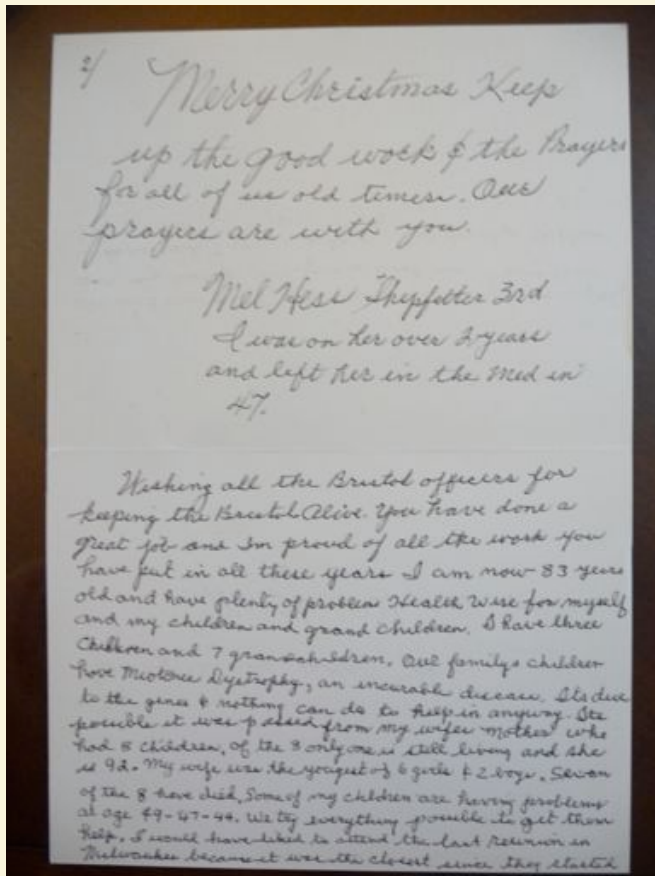 2/
Merry Christmas Keep
up the good work & the Prayers
for all of us old timers. Our
prayers are with you.
Mel Hess Shipfitter 3rd
I was on her over 2 years
and left her in the Med in
47.
Wishing all the Bristol officers for
keeping the Bristol Alive. You have done a
great job and Im proud of all the work you
have put in all these years I am now 83 years
old and have plenty of problems Health Wise for myself
and my children and grand children. I have three
Children and 7 grandchildren. Our familys children
have Miotonic Dystrophy, an incurable disease. Its due
to the genes & nothing can do to help in anyway. Its
possible it was passed from my wifes mother who
had 8 children, of the 8 only one is still living and she
is 92. My wife was the youngest of 6 girls & 2 boys. Seven
of the 8 have died, Some of my children are having problems
at age 49-47-44. We try everything possible to get them
help. I would have liked to attend the last reunion in
Milwaukee because it was the closest since they started